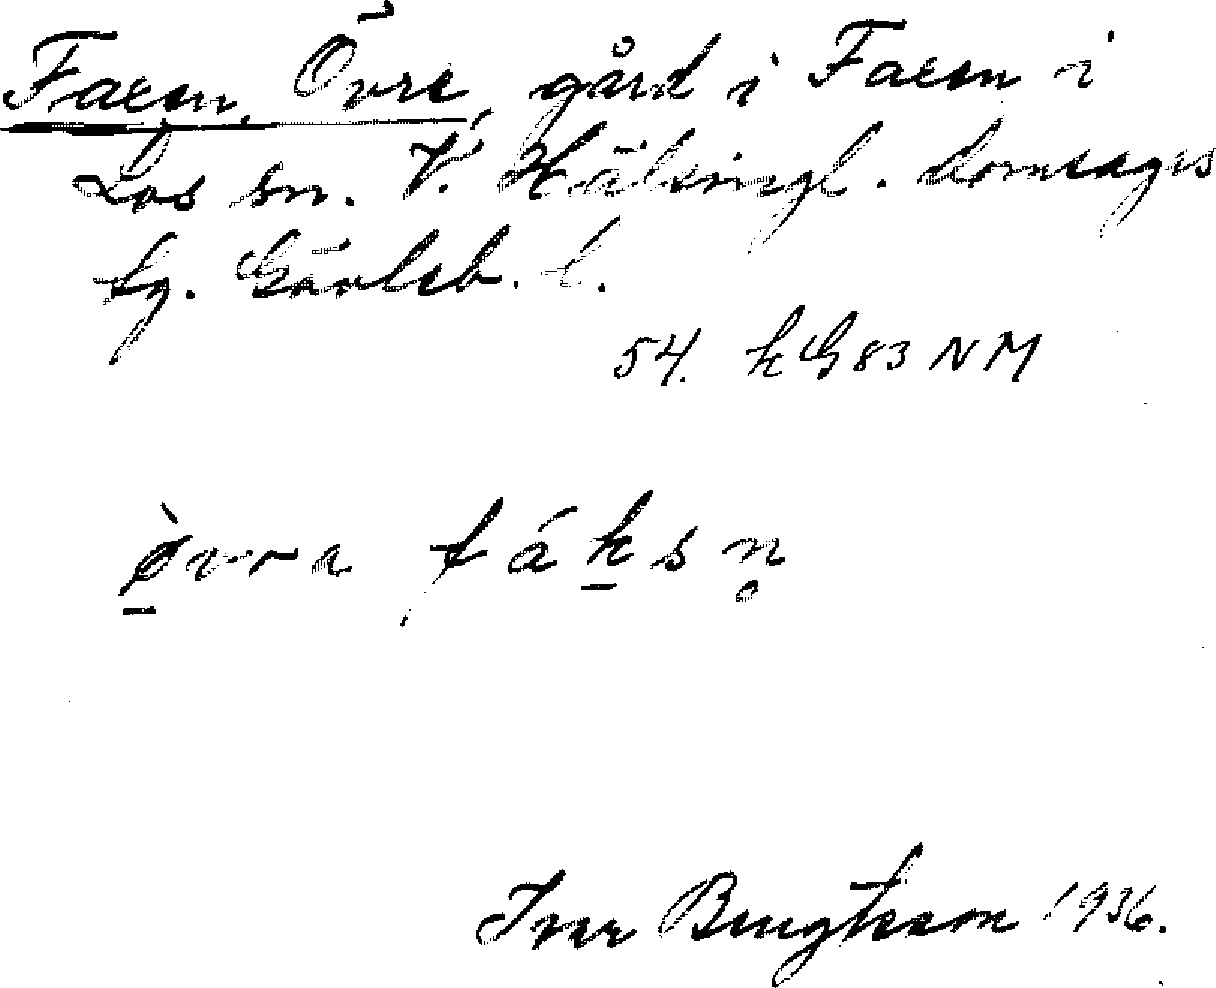 Faxen, Övre, gård i Faxen i
Los sn. V. Hälsingl. domsagas
tg. Gävleb. l.
54. k G 83 NM
ø̠̀vra fák̠sn̥
Iver Bengtsson 1936.